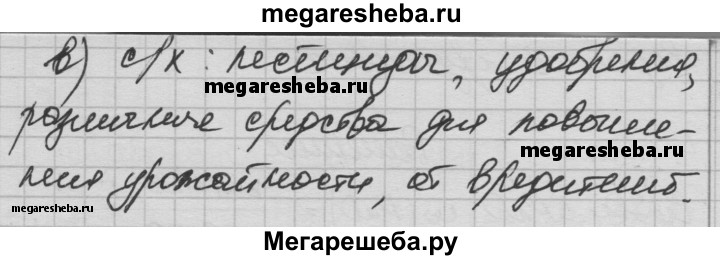 megaresheba.ru
в) с/х: пестициды, удобрения,
megaresheba.ru
различные средства для повыше-
megaresheba.ru
ния урожайности, от вредителей.
megaresheba.ru
Мегарешеба.ру